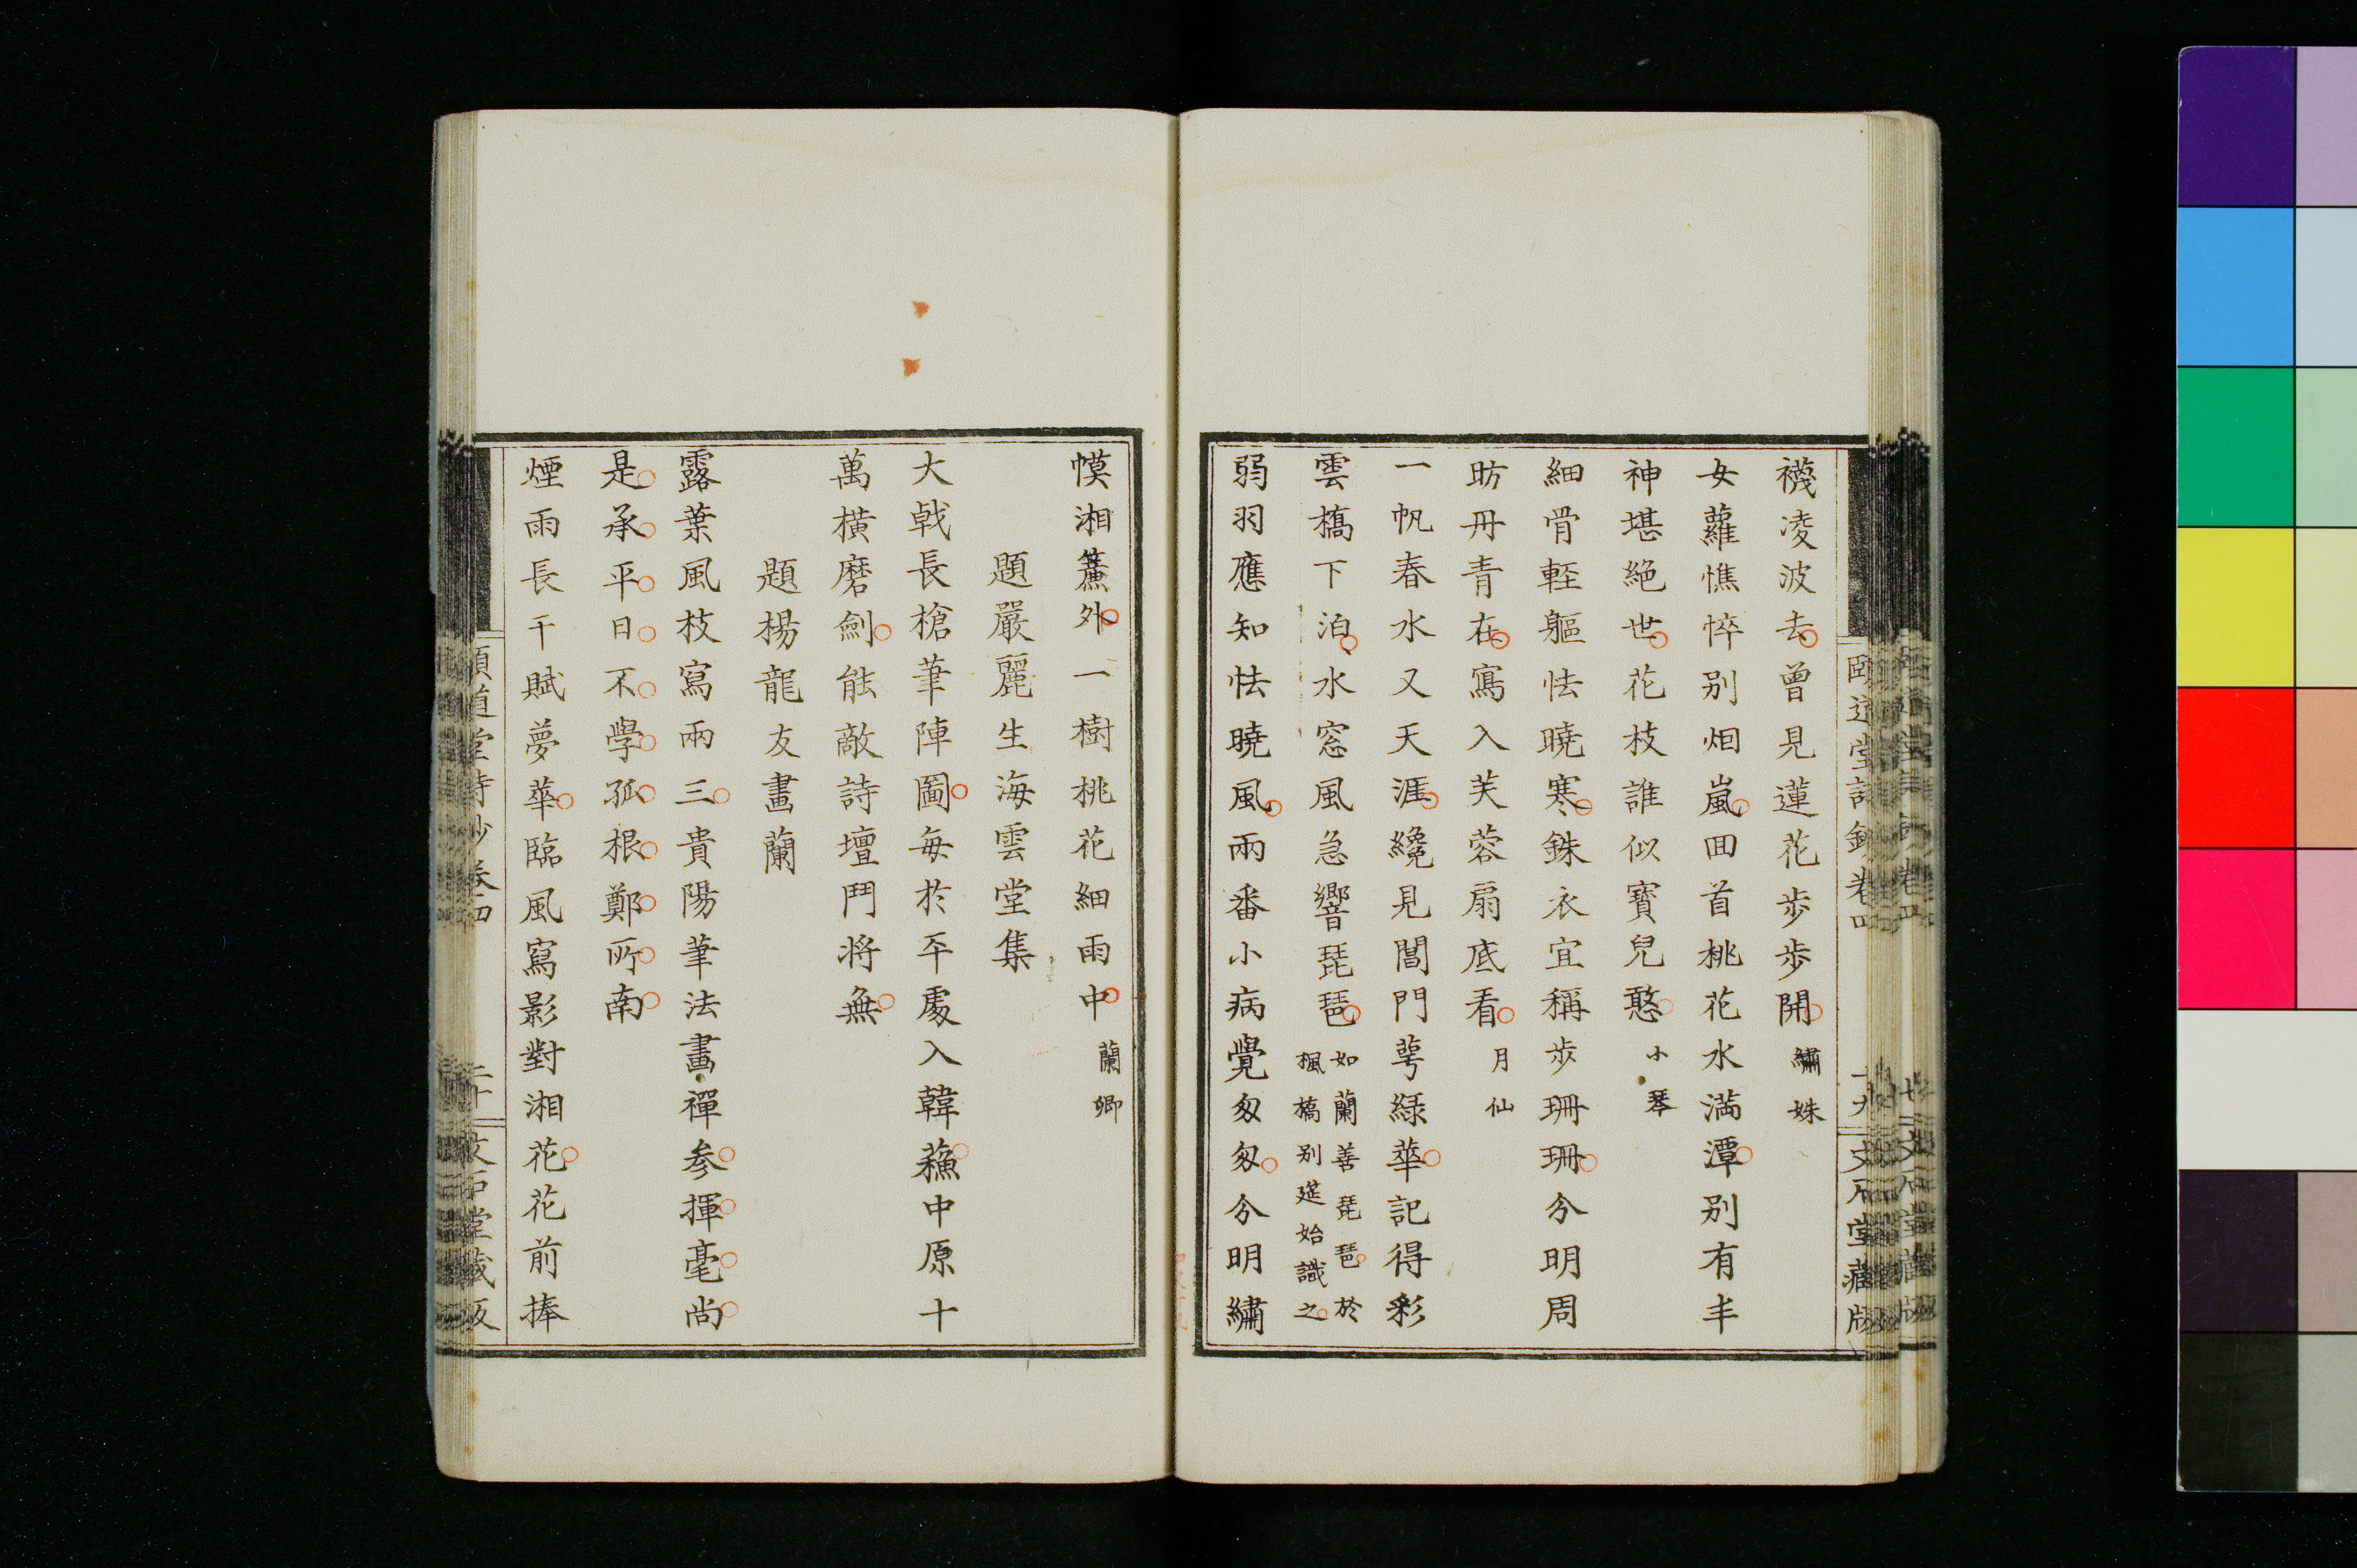 襪凌波去曾見蓮花歩歩開 繡姝
女蘿憔悴別烟嵐囬首桃花水満潭別有丰
神堪絶世花枝誰似寳兒憨 小琴
細骨輕軀怯曉寒銖衣宜稱歩珊珊分明周
昉丹青在寫入芙蓉扇底看 月仙
一帆春水又天涯纔見閶門萼緑華記得彩
雲橋下泊水窓風急響琵琶 如蘭善琵琶於
楓橋别筵始識之
弱羽應知怯曉風兩番小病覺匆匆分明繡
幙湘簾外一樹桃花細雨中 蘭卿
題嚴麗生海雲堂集
大戟長槍筆陣圖毎於平處入韓蘓中原十
萬横磨劍能敵詩壇鬥将無
題楊龍友畫蘭
露葉風枝寫兩三貴陽筆法畫禪参揮毫尚
是承平日不學孤根鄭所南
煙雨長干賦夢華臨風寫影對湘花花前捧
頤道堂詩鈔卷四
二十
文石堂藏板